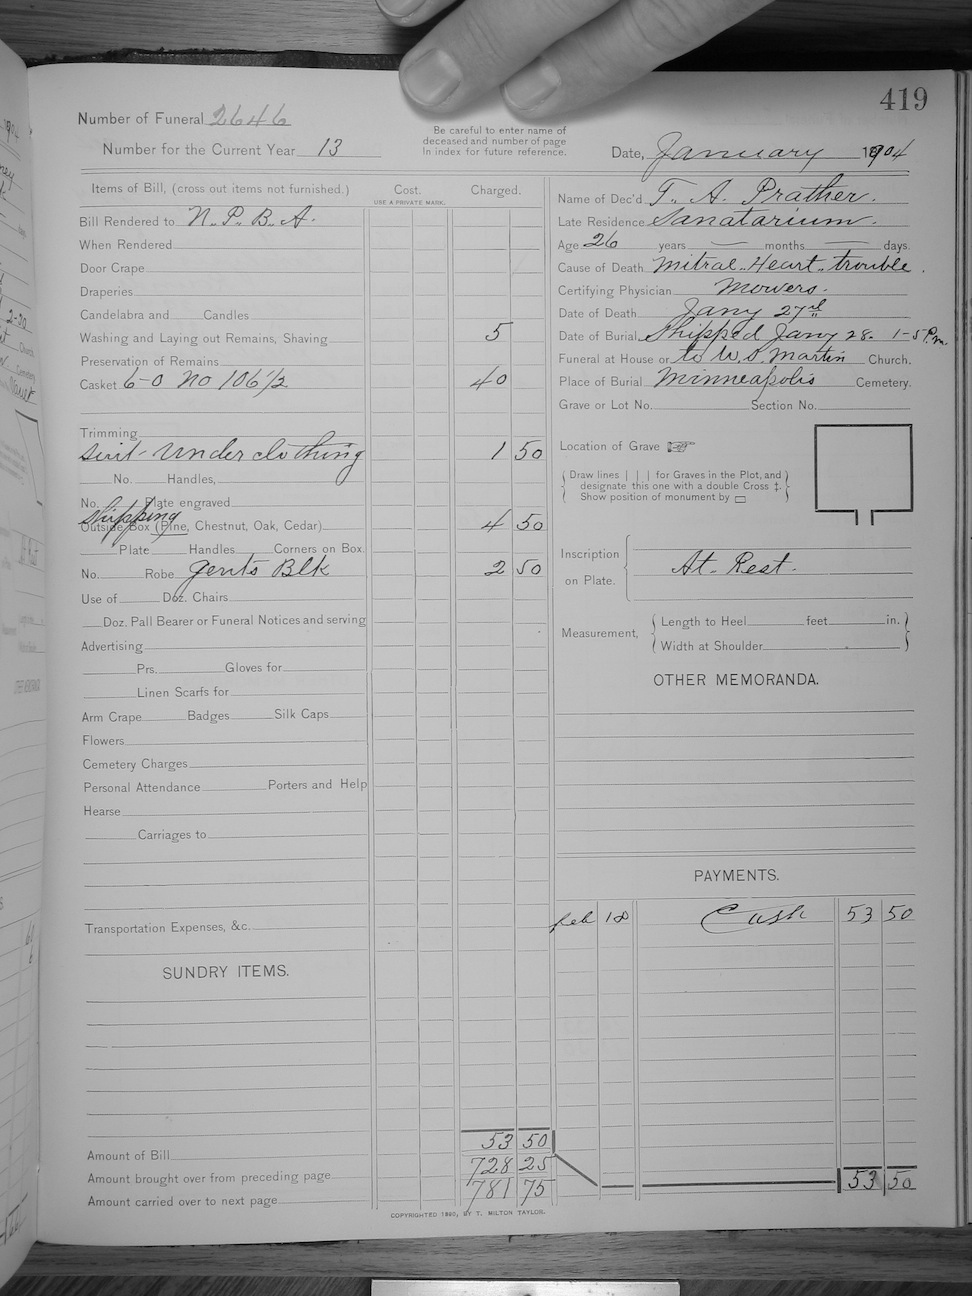 419
Number of Funeral 2646
Number for the Current Year 13
Be careful to enter name of
deceased and number of page
In index for future reference.
Date, January 1904
Items of Bill, (cross out items not furnished.) Cost. Charged.
USE A PRIVATE MARK.
Bill Rendered to N. P. B. A.
When Rendered
Door Crape
Draperies
Candelabra and Candles
Washing and Laying out Remains, Shaving 5
Preservation of Remains
Casket 6-0 No 106½ 40
Trimming
Suit Underclothing 1 50
No. Handles,
No. Plate engraved
Shipping
Outside Box (Pine, Chestnut, Oak, Cedar) 4 50
Plate Handles Corners on Box.
No. Robe Gents Blk 2 50
Use of Doz. Chairs
Doz. Pall Bearer or Funeral Notices and serving
Advertising
Prs. Gloves for
Linen Scarfs for
Arm Crape Badges Silk Caps
Flowers
Cemetery Charges
Personal Attendance Porters and Help
Hearse
Carriages to
Transportation Expenses, &c.
SUNDRY ITEMS.
53 50
Amount of Bill
728 25
Amount brought over from preceding page
781 75
Amount carried over to next page
Name of Dec'd T. A. Prather.
Late Residence Sanatarium.
Age 26 years — months — days.
Cause of Death Mitral Heart trouble.
Certifying Physician Mowers.
Date of Death Jany 27th
Date of Burial Shipped Jany 28. 1-5 P.m.
Funeral at House or to W. S. Martin Church.
Place of Burial Minneapolis Cemetery.
Grave or Lot No. Section No.
Location of Grave ☞
(Draw lines | | | for Graves in the Plot, and
designate this one with a double Cross ‡.
Show position of monument by ▭)
Inscription
on Plate.
At Rest.
Measurement, Length to Heel feet in.
Width at Shoulder
OTHER MEMORANDA.
PAYMENTS.
Feb 18 Cash 53 50
53 50
COPYRIGHTED 1890, BY T. MILTON TAYLOR.